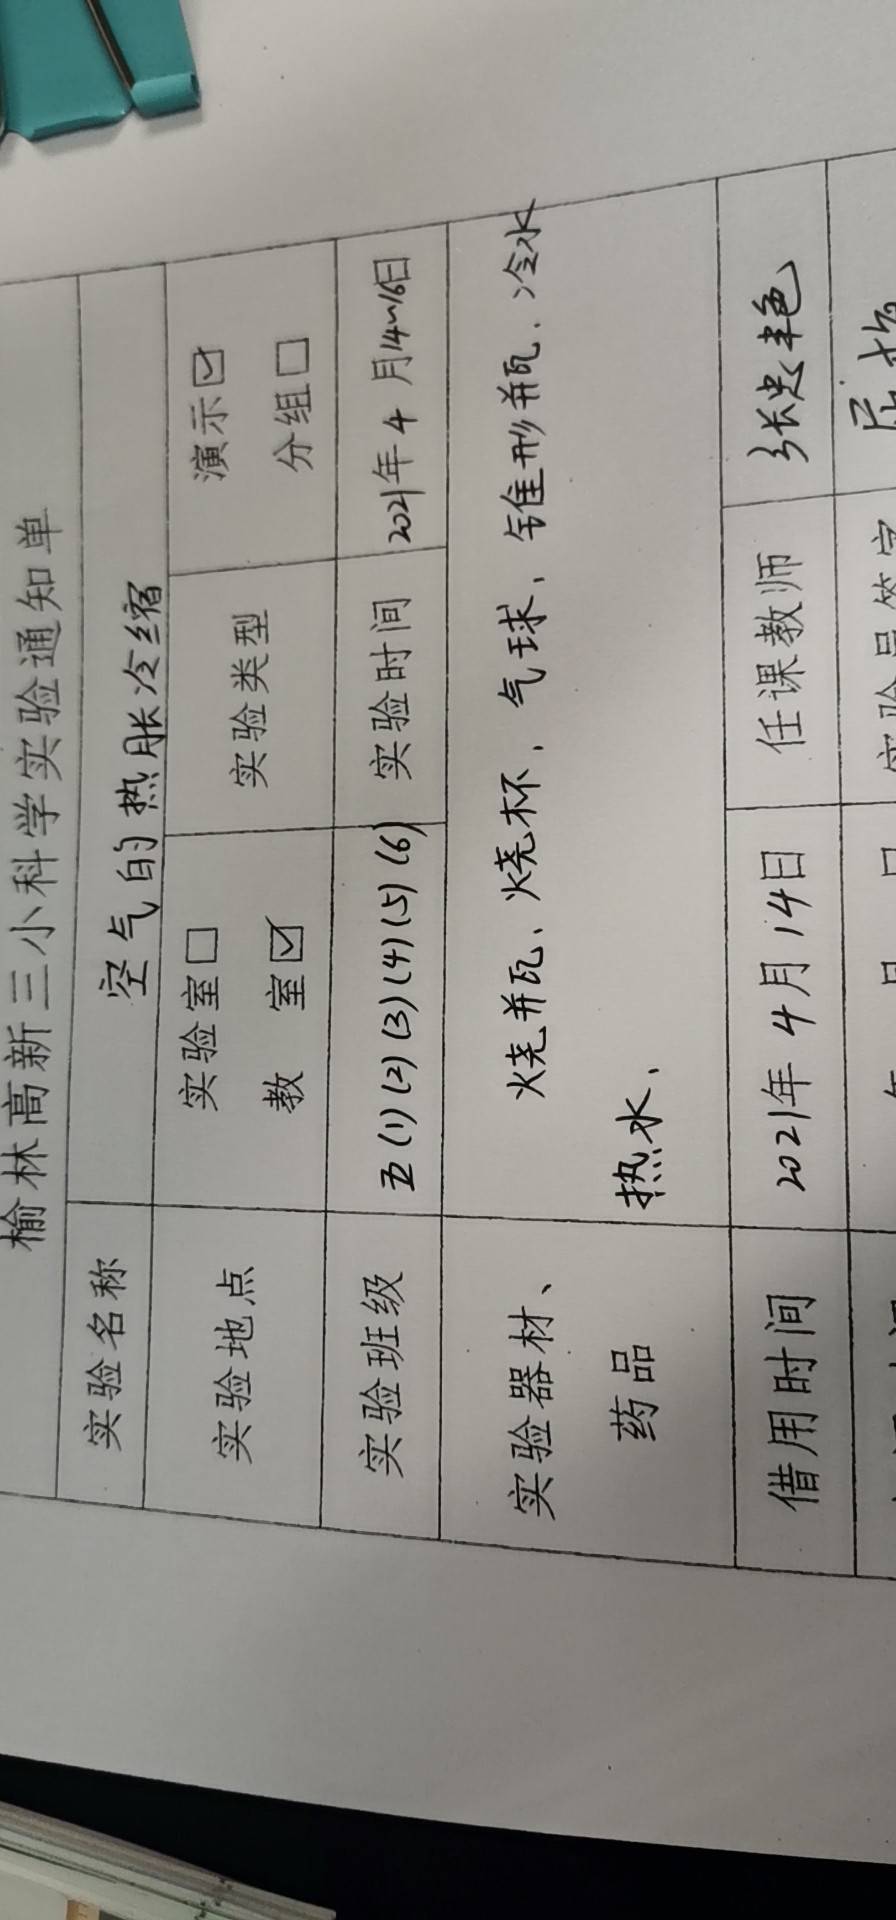 榆林高新三小科学实验通知单
实验名称 空气的热胀冷缩
实验地点 实验室□ 教 室☑ 实验类型 演示☑ 分组□
实验班级 五(1)(2)(3)(4)(5)(6) 实验时间 2021年4月14~16日
实验器材、药品 烧并瓦、烧杯、气球、锥形瓶、冷水
热水、
借用时间 2021年4月14日 任课教师 张忠艳